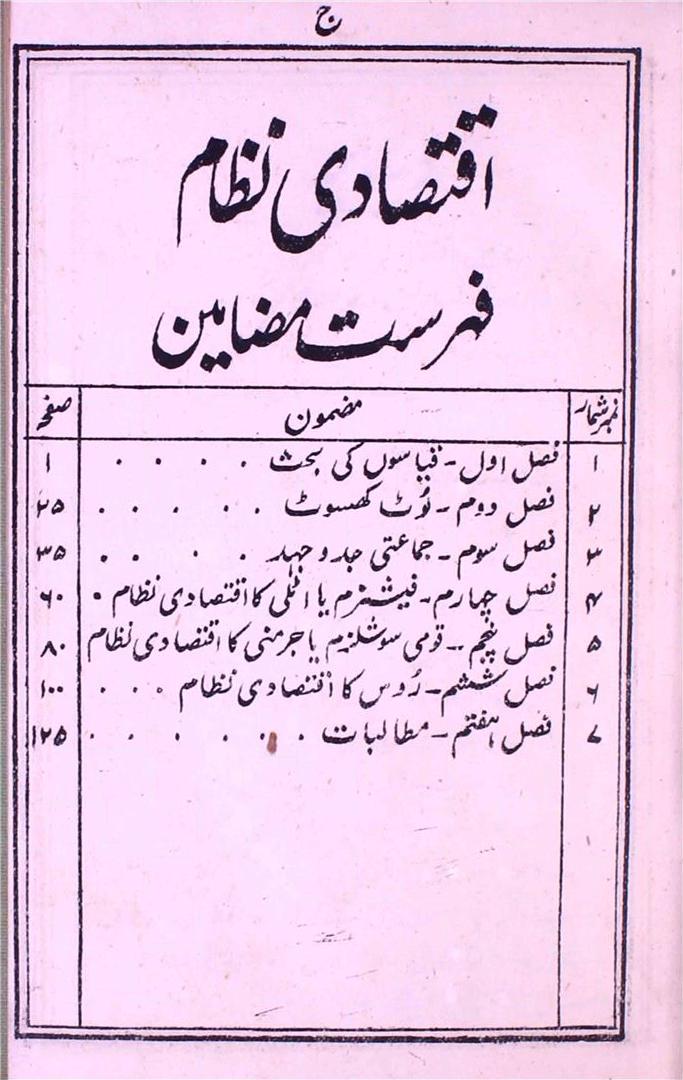 ج
اقتصادی نظام
فہرست مضامین
نمبر شمار مضمون صفحہ
۱ فصل اول - قیاسوں کی بحث . . . . ۱
۲ فصل دوم - لُوٹ کھسوٹ . . . . . ۲۵
۳ فصل سوم - جماعتی جد و جہد . . . . ۳۵
۴ فصل چہارم - فیشزم یا اٹلی کا اقتصادی نظام . ۶۰
۵ فصل پنجم - قومی سوشلزم یا جرمنی کا اقتصادی نظام ۸۰
۶ فصل ششم - رُوس کا اقتصادی نظام . . . ۱۰۰
۷ فصل ہفتم - مطالبات . . . . . . ۱۲۵